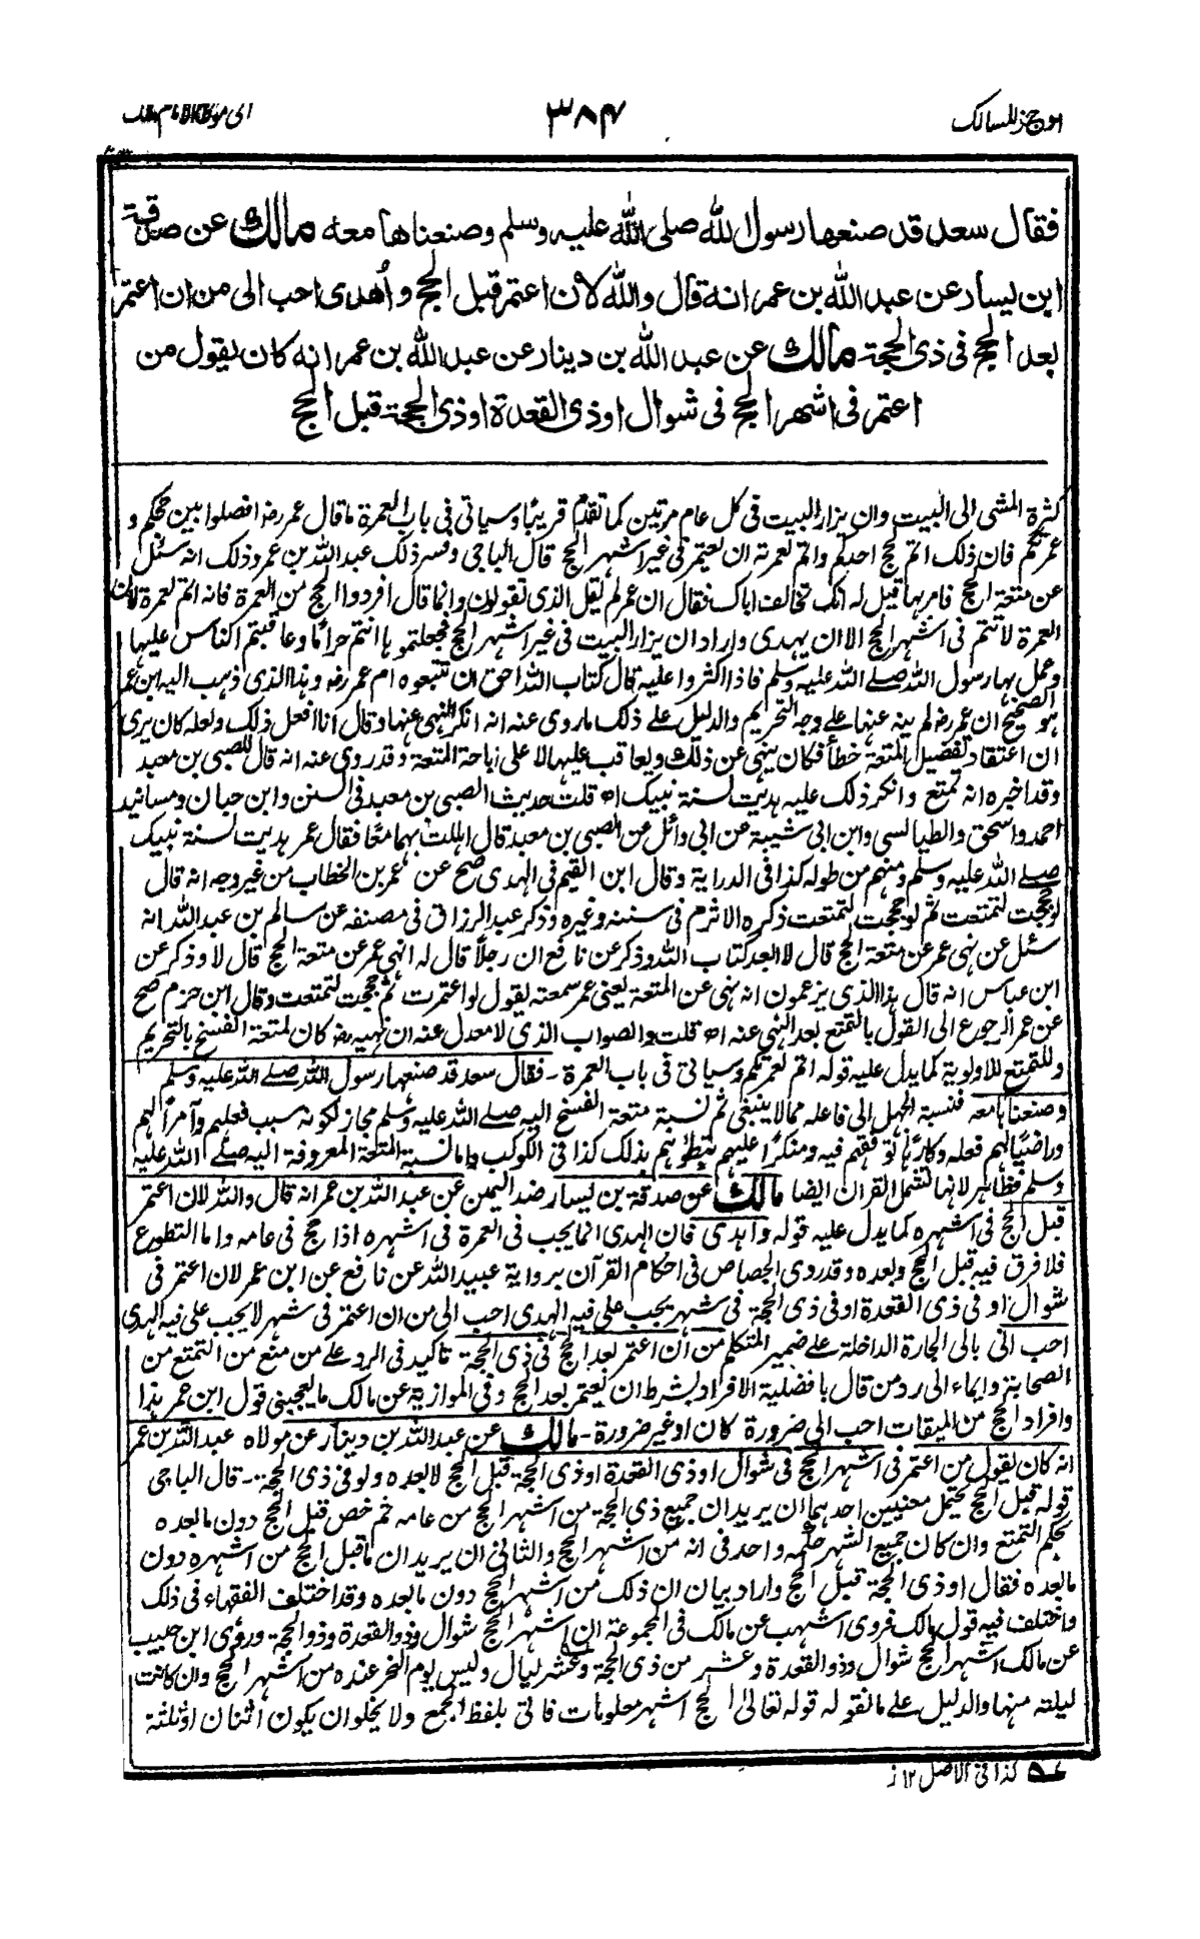 اوجز المسالك
۳۸۴
الى موطأ الامام مالك
فقال سعد قد صنعها رسول الله صلى الله عليه وسلم وصنعناها معه مالك عن صدقة
ابن يسار عن عبد الله بن عمر انه قال والله لان اعتمر قبل الحج و اُهدى احب الى من ان اعتمر
بعد الحج فى ذى الحجة مالك عن عبد الله بن دينار عن عبد الله بن عمر انه كان يقول من
اعتمر فى اشهر الحج فى شوال او ذى القعدة او ذى الحجة قبل الحج
كثرة المشى الى البيت وان يزار البيت فى كل عام مرتين كما تقدم قريبًا وسياتى فى باب العمرة ما قال عمر رضه افصلوا بين حجكم و
عمرتكم فان ذلك اتم لحج احدكم واتم لعمرته ان يعتمر فى غير اشهر الحج قال الباجى وفسر ذلك عبد الله بن عمر وذلك انه سئل
عن متعة الحج فامر بها قيل له انك تخالف اباك فقال ان عمر لم يقل الذى تقولون وانما قال افردوا الحج من العمرة فانه اتم للعمرة لان
العمرة لا تتم فى اشهر الحج الا ان يهدى واراد ان يزار البيت فى غير اشهر الحج فجعلتموها انتم حرامًا وعاقبتم الناس عليها
وعمل بها رسول الله صلے الله عليه وسلم فاذا اكثروا عليه قال كتاب الله احق ان تتبعوه ام عمر رضه وهذا الذى ذهب اليه ابن عمر
هو الصحيح ان عمر رضه لم ينه عنها علے وجه التحريم والدليل علے ذلك ما روى عنه انه انكر النهى عنها وقال انا افعل ذلك ولعله كان يرى
ان اعتقاد تفضيل المتعة خطأ فكان ينهى عن ذلك ويعاقب عليها لا على اباحة المتعة وقد روى عنه انه قال للصبى بن معبد
وقد اخبره انه تمتع وانكر ذلك عليه هديت لسنة نبيك اه قلت حديث الصبى بن معبد فى السنن وابن حبان ومسانيد
احمد واسحق والطيالسى وابن ابى شيبة عن ابى وائل عن الصبى بن معبد قال اهللت بهما معًا فقال عمر هديت لسنة نبيك
صلے الله عليه وسلم ومنهم من طوله كذا فى الدراية وقال ابن القيم فى الهدى صح عن عمر بن الخطاب من غير وجه انه قال
لو حججت لتمتعت ثم لو حججت لتمتعت ذكره الاثرم فى سننه وغيره وذكر عبد الرزاق فى مصنفه عن سالم بن عبد الله انه
سئل عن نهى عمر عن متعة الحج قال لا ابعد كتاب الله وذكر عن نافع ان رجلًا قال له انهى عمر عن متعة الحج قال لا وذكر عن
ابن عباس انه قال هذا الذى يزعمون انه نهى عن المتعة يعنى عمر سمعته يقول لو اعتمرت ثم حججت لتمتعت وقال ابن حزم صح
عن عمر الرجوع الى القول بالتمتع بعد النهى عنه اه قلت والصواب الذى لا معدل عنه ان نهيه رضه كان لمتعة الفسخ بالتحريم
وللتمتع للاولوية كما يدل عليه قوله اتم لعمرتكم وسياتى فى باب العمرة - فقال سعد قد صنعها رسول الله صلے الله عليه وسلم
وصنعناها معه فنسبة الجهل الى فاعله مما لا ينبغى ثم نسبة متعة الفسخ اليه صلے الله عليه وسلم مجاز لكونه سبب فعلهم وآمرًا لهم
وراضيًا لهم فعله وكارهًا توقفهم فيه ومنكرًا عليهم تبطؤهم بذلك كذا فى الكوكب واما نسبة المتعة المعروفة اليه صلے الله عليه
وسلم فظاهر لانها تشمل القران ايضا مالك عن صدقة بن يسار ضد اليمين عن عبد الله بن عمر انه قال والله لان اعتمر
قبل الحج فى اشهره كما يدل عليه قوله واهدى فان الهدى انما يجب فى العمرة فى اشهره اذا حج فى عامه واما التطوع
فلا فرق فيه قبل الحج وبعده وقد روى الجصاص فى احكام القرآن برواية عبيد الله عن نافع عن ابن عمر لان اعتمر فى
شوال او فى ذى القعدة او فى ذى الحجة فى شهر يجب على فيه الهدى احب الى من ان اعتمر فى شهر لا يجب على فيه الهدى
احب الى بالى الجارة الداخلة علے ضمير المتكلم من ان اعتمر بعد الحج فى ذى الحجة تاكيد فى الرد على من منع من التمتع من
الصحابة وايماء الى رد من قال بافضلية الافراد بشرط ان يعتمر بعد الحج وفى الموازية عن مالك ما يعجبنى قول ابن عمر هذا
وافراد الحج من الميقات احب الى ضرورة كان او غير ضرورة - مالك عن عبد الله بن دينار عن مولاه عبد الله بن عمر
انه كان يقول من اعتمر فى اشهر الحج فى شوال او ذى القعدة او ذى الحجة قبل الحج لا بعده ولو فى ذى الحجة - قال الباجى
قوله قبل الحج يحتمل معنيين احدهما ان يريد ان جميع ذى الحجة من اشهر الحج من عامه ثم خص قبل الحج دون ما بعده
بحكم التمتع وان كان جميع الشهر حكمه واحد فى انه من اشهر الحج والثانى ان يريد ان ما قبل الحج من اشهره دون
ما بعده فقال او ذى الحجة قبل الحج واراد بيان ان ذلك من اشهر الحج دون ما بعده وقد اختلف الفقهاء فى ذلك
واختلف فيه قول مالك فروى اشهب عن مالك فى المجموعة ان اشهر الحج شوال وذو القعدة وذو الحجة وروى ابن حبيب
عن مالك اشهر الحج شوال وذو القعدة وعشر من ذى الحجة وعشر ليال وليس يوم النحر عنده من اشهر الحج وان كانت
ليلته منها والدليل علے ما نقوله قوله تعالى الحج اشهر معلومات فاتى بلفظ الجمع ولا يخلو ان يكون اثنان او ثلثة
كذا فى الاصل ۱۲ ز